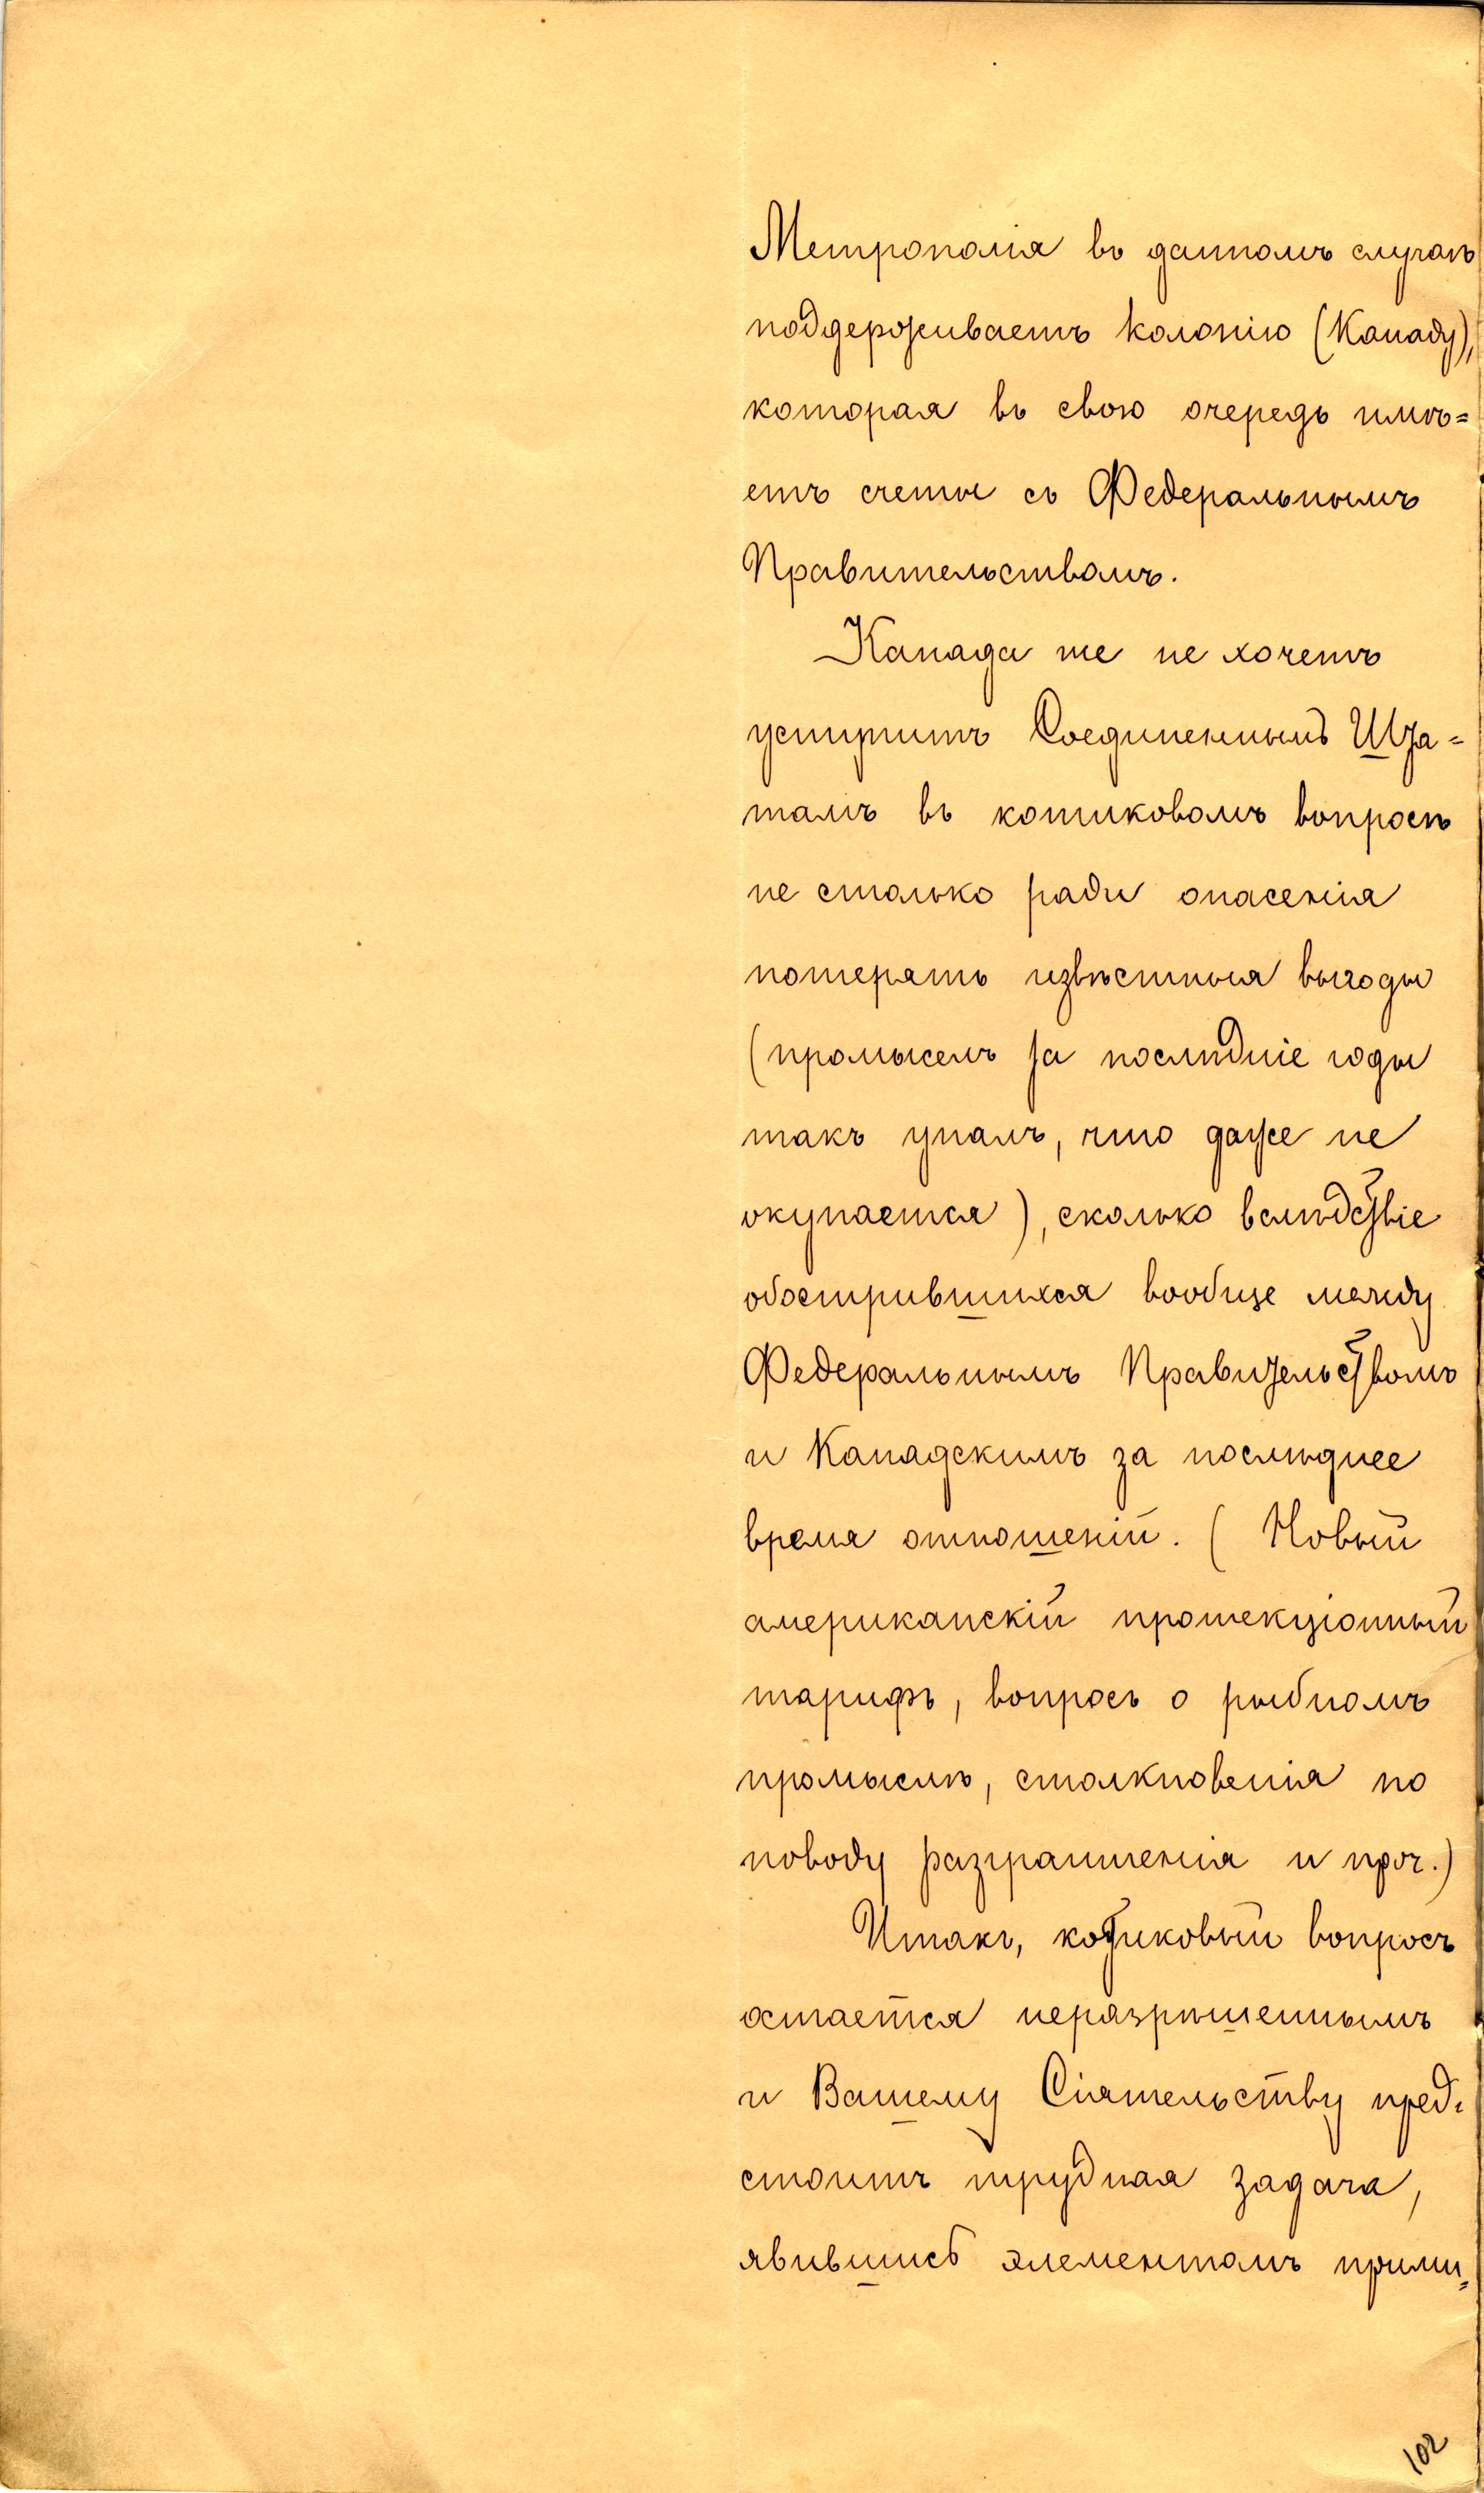 Метрополія въ данномъ случаѣ
поддерживаетъ колонію (Канаду),
которая въ свою очередь имѣ=
етъ счеты съ Федеральнымъ
Правительствомъ.
Канада же не хочетъ
уступить Соединеннымъ Шта=
тамъ въ котиковомъ вопросѣ
не столько ради опасенія
потерять извѣстныя выгоды
(промыселъ за послѣдніе годы
такъ упалъ, что даже не
окупается), сколько вслѣдствіе
обострившихся вообще между
Федеральнымъ Правительствомъ
и Канадскимъ за послѣднее
время отношеній. (Новый
американскій протекціонный
тарифъ, вопросъ о рыбномъ
промыслѣ, столкновенія по
поводу разграниченія и проч.)
Итакъ, котиковый вопросъ
остается неразрѣшеннымъ
и Вашему Сіятельству пред=
стоитъ трудная задача,
явившись элементомъ прими=
102